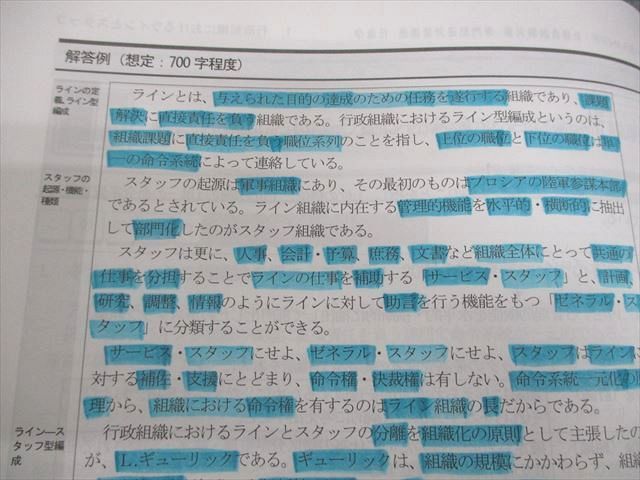 解答例（想定：700字程度）
ラインの定
義、ライン型
編成
ラインとは、与えられた目的の達成のための任務を遂行する組織であり、課題
解決に直接責任を負う組織である。行政組織におけるライン型編成というのは、
組織課題に直接責任を負う職位系列のことを指し、上位の職位と下位の職位は単
一の命令系統によって連絡している。
スタッフの
起源・機能・
種類
スタッフの起源は軍事組織にあり、その最初のものはプロシアの陸軍参謀本部
であるとされている。ライン組織に内在する管理的機能を水平的・横断的に抽出
して部門化したのがスタッフ組織である。
スタッフは更に、人事、会計・予算、庶務、文書など組織全体にとって共通の
仕事を分担することでラインの仕事を補助する「サービス・スタッフ」と、計画、
研究、調整、情報のようにラインに対して助言を行う機能をもつ「ゼネラル・ス
タッフ」に分類することができる。
サービス・スタッフにせよ、ゼネラル・スタッフにせよ、スタッフはラインに
対する補佐・支援にとどまり、命令権・決裁権は有しない。命令系統一元化の原
理から、組織における命令権を有するのはライン組織の長だからである。
ライン―ス
タッフ型編
成
行政組織におけるラインとスタッフの分離を組織化の原則として主張したの
が、L.ギューリックである。ギューリックは、組織の規模にかかわらず、組織